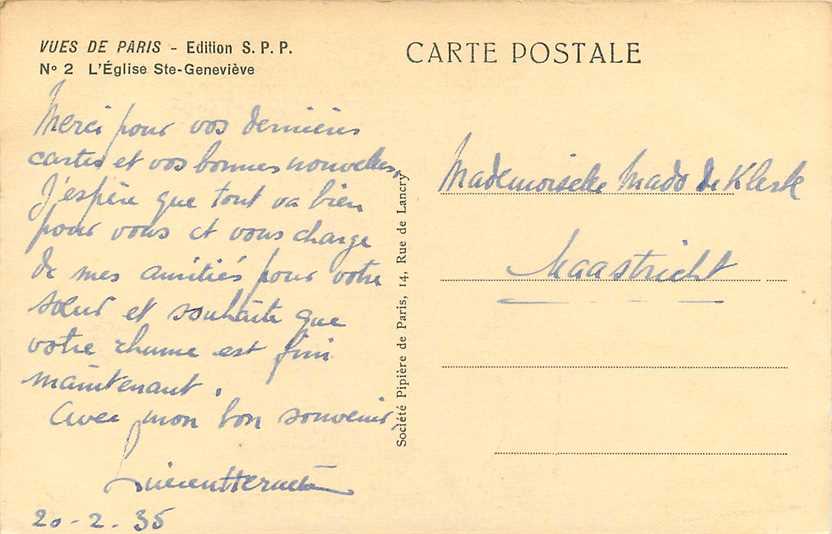 VUES DE PARIS - Edition S. P. P.
No 2 L'Église Ste-Geneviève
CARTE POSTALE
Merci pour vos dernières
cartes et vos bonnes nouvelles,
J'espère que tout va bien
pour vous et vous charge
de mes amitiés pour votre
sœur et souhaite que
votre rhume est fini
maintenant.
Avec mon bon souvenir,
20-2.35
Société Pipière de Paris, 14, Rue de Lancry
Mademoiselle Mado de Klerk
Maastricht